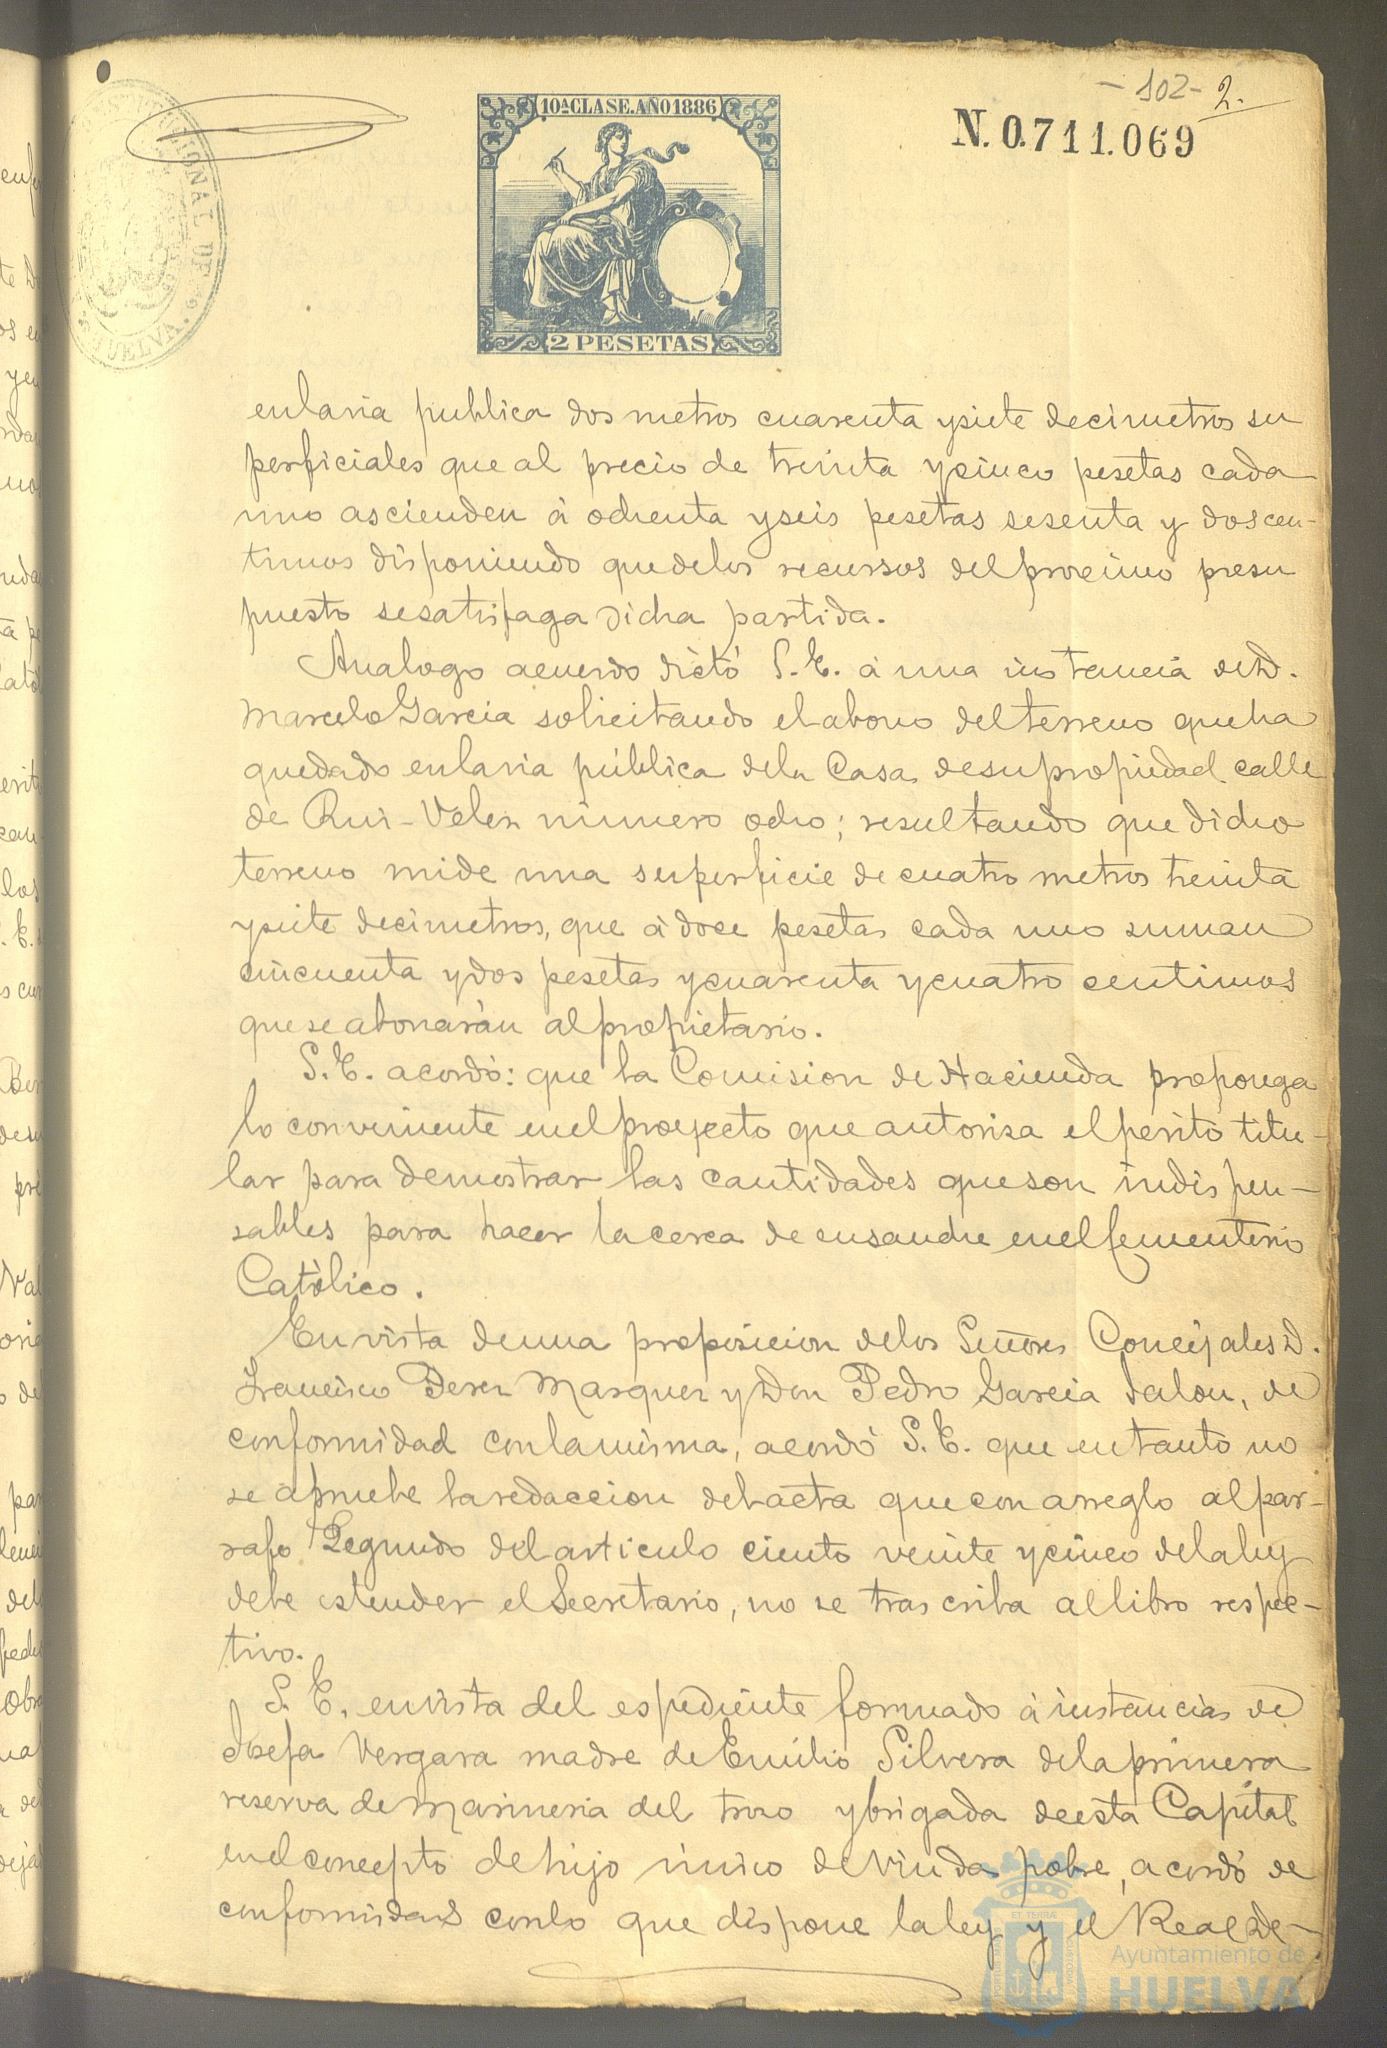 - 102 - 2.
10ª CLASE. AÑO 1886
N. 0.711.069
CONSTITUCIONAL DE
HUELVA.
2 PESETAS
en la via publica dos metros cuarenta y siete decimetros su
perficiales que al precio de treinta y cinco pesetas cada
uno ascienden á ochenta y seis pesetas sesenta y dos cen-
timos disponiendo que de los recursos del proximo presu
puesto se satisfaga dicha partida.
Analogo acuerdo dictó S. E. á una instancia de D.
Marcelo Garcia solicitando el abono del terreno que ha
quedado en la via pública de la Casa de su propiedad calle
de Rui-Velez número ocho; resultando que dicho
terreno mide una superficie de cuatro metros treinta
y siete decimetros, que á doce pesetas cada uno suman
cincuenta y dos pesetas y cuarenta y cuatro centimos
que se abonarán al propietario.
S. E. acordó: que la Comision de Hacienda proponga
lo conveniente en el proyecto que autoriza el perito titu-
lar para demostrar las cantidades que son indispen-
sables para hacer la cerca de ensanche en el Cementerio
Católico.
En vista de una proposicion de los Señores Concejales D.
Francisco Perez Marquez y Don Pedro Garcia Jalon, de
conformidad con la misma, acordó S. E. que en tanto no
se apruebe la redaccion del acta que con arreglo al par-
rafo Segundo del articulo ciento veinte y cinco de la ley
debe estender el Secretario, no se trascriba al libro respec-
tivo.
S. E. en vista del espediente formado á instancias de
Josefa Vergara madre de Emilio Silvera de la primera
reserva de Marineria del trozo y brigada de esta Capital
en el concepto de hijo único de Viuda pobre, acordó de
conformidad con lo que dispone la ley y el Real De-
Ayuntamiento de
HUELVA